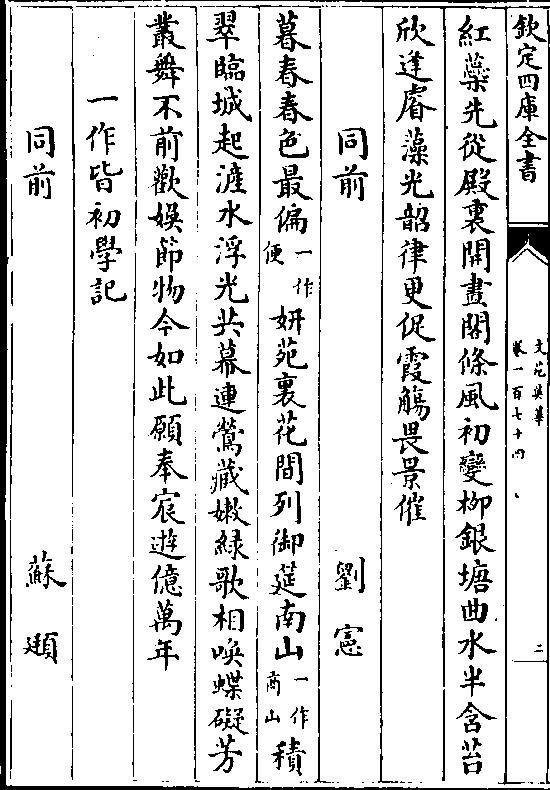 欽定四庫全書
文苑英華
卷一百七十四
二
紅蘂先從殿裏開畫閣條風初變柳銀塘曲水半含苔
欣逢睿藻光韶律更促霞觴畏景催
同前　劉憲
暮春春色最偏一作便妍苑裏花間列御筵南山一作商山積
翠臨城起滻水浮光共幕連鶯藏嫩綠歌相喚蝶礙芳
叢舞不前歡娛節物今如此願奉宸遊億萬年
一作皆初學記
同前　蘇頲